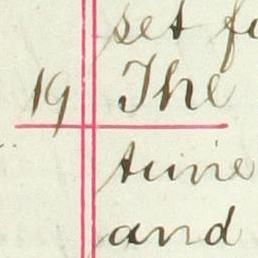 set fo
19 The
time
and